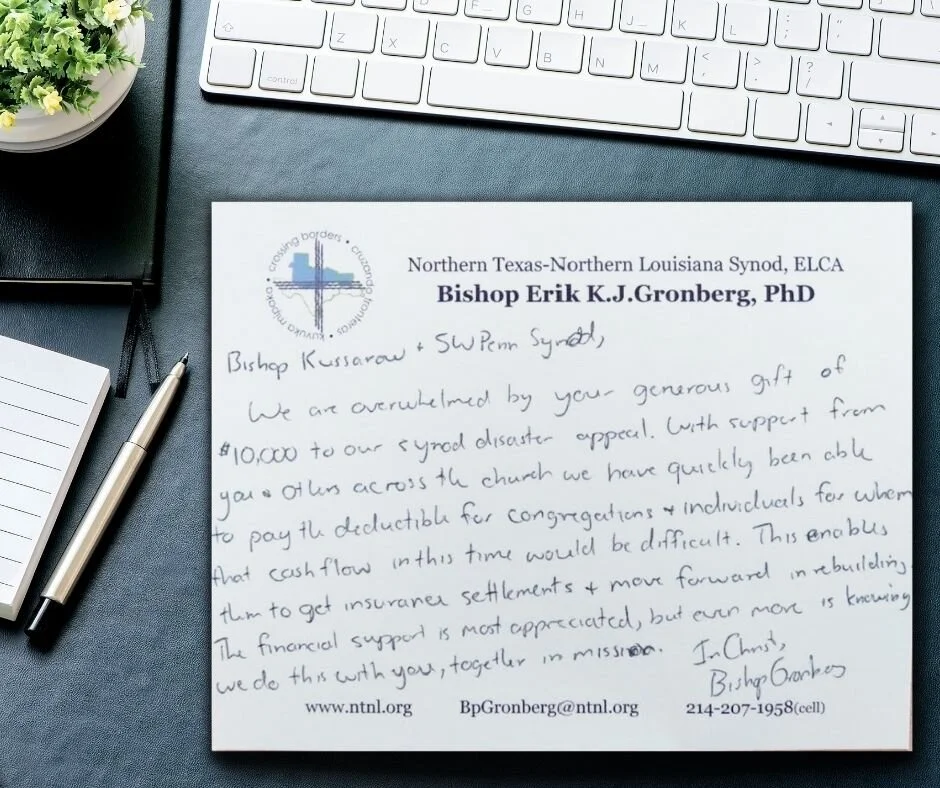 F G H J K L : ; " '
Z X C V B N M < , > . ? /
control
crossing borders • cruzando fronteras • kuvuka mipaka •
Northern Texas-Northern Louisiana Synod, ELCA
Bishop Erik K.J.Gronberg, PhD
Bishop Kussarow + SW Penn Synod,
We are overwhelmed by your generous gift of
$10,000 to our synod disaster appeal. With support from
you & others across the church we have quickly been able
to pay the deductible for congregations + individuals for whom
that cash flow in this time would be difficult. This enables
them to get insurance settlements + move forward in rebuilding.
The financial support is most appreciated, but even more is knowing
we do this with you, together in mission.
In Christ,
Bishop Gronberg
www.ntnl.org BpGronberg@ntnl.org 214-207-1958(cell)